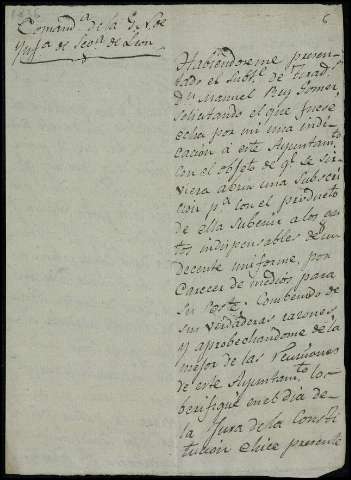 1836
6
Comand.ª de la G. N. de
Inf.ª de Seg.ª de Leon
Habiendoreme presen-
tado el Subt.e de Tirad.s
D.n Manuel Rey Gomez
solicitando el que fuese
echa por mi una indi-
cacion á este Ayuntam.to
con el objeto de q.e se sir-
viera abrir una Subscri-
cion p.ª con el producto
de ella subenir a los gas-
tos indispensables de un
decente uniforme, por
Carecer de medios para
su Coste. Combencido de
sus verdaderas razones
y aprobechandome de la
mejor de las Reuniones
de este Ayuntam.to los
berifiqué en el dia de
la Jura de la Consti
tucion e hice presente